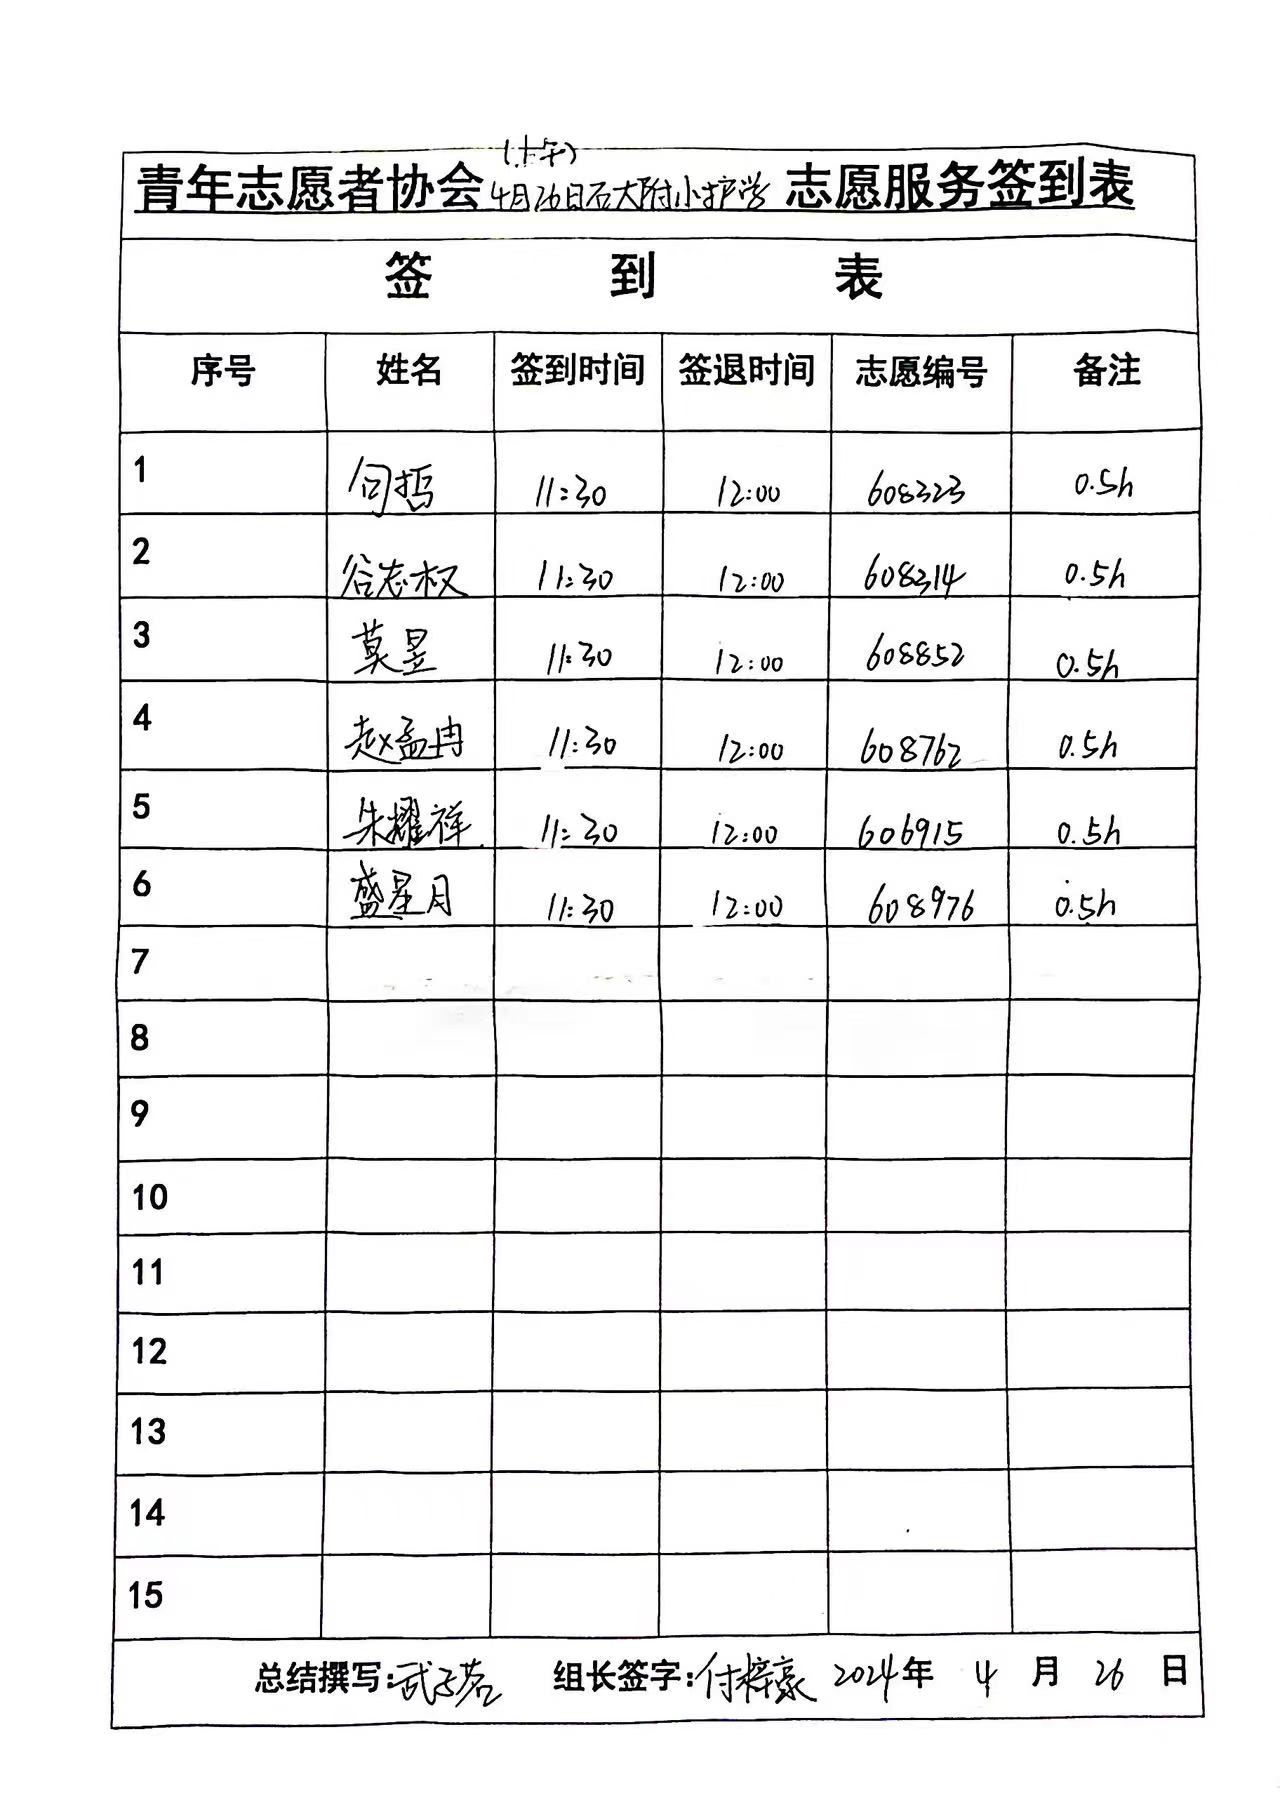 (上午)
青年志愿者协会4月26日石大附小护学志愿服务签到表
签 到 表
序号 姓名 签到时间 签退时间 志愿编号 备注
1 向哲 11:30 12:00 608323 0.5h
2 谷志权 11:30 12:00 608314 0.5h
3 莫昱 11:30 12:00 608852 0.5h
4 赵孟冉 11:30 12:00 608762 0.5h
5 朱耀祥 11:30 12:00 606915 0.5h
6 盛星月 11:30 12:00 608976 0.5h
7
8
9
10
11
12
13
14
15
总结撰写:武子茗 组长签字:付梓豪 2024年 4 月 26 日